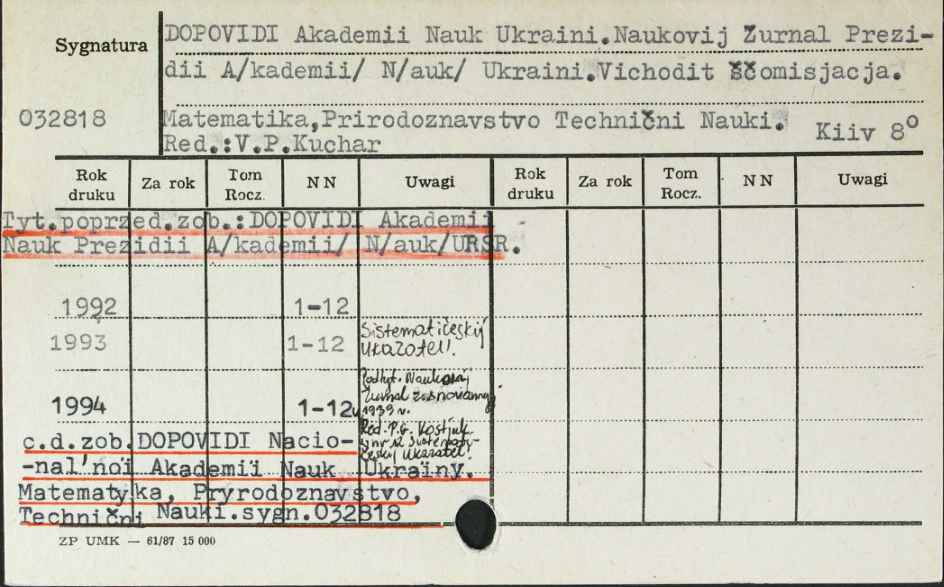 Sygnatura
DOPOVIDI Akademii Nauk Ukraini.Naukovij Žurnal Prezi-
dii A/kademii/ N/auk/ Ukraini.Vichodit ščomisjacja.
032818
Matematika,Prirodoznavstvo Technični Nauki.
Red.:V.P.Kuchar
Kiiv 8°
Rok druku Za rok Tom Rocz. N N Uwagi Rok druku Za rok Tom Rocz. N N Uwagi
Tyt.poprzed.zob.:DOPOVIDI Akademii
Nauk Prezidii A/kademii/ N/auk/URSR.
1992 1-12
1993 1-12 Sistematičeskij
Ukazatel'.
Podtyt. Naukovij
Žurnal zasnovanyj
1994 1-12 1939 r.
Red. P.G. Kostjuk
w nr 12 Sistemati-
českij Ukazatel'.
c.d.zob.DOPOVIDI Nacio-
-nal'noï Akademiï Nauk Ukraïny.
Matematyka, Pryrodoznavstvo,
Technični Nauki.sygn.032818
ZP UMK — 61/87 15 000